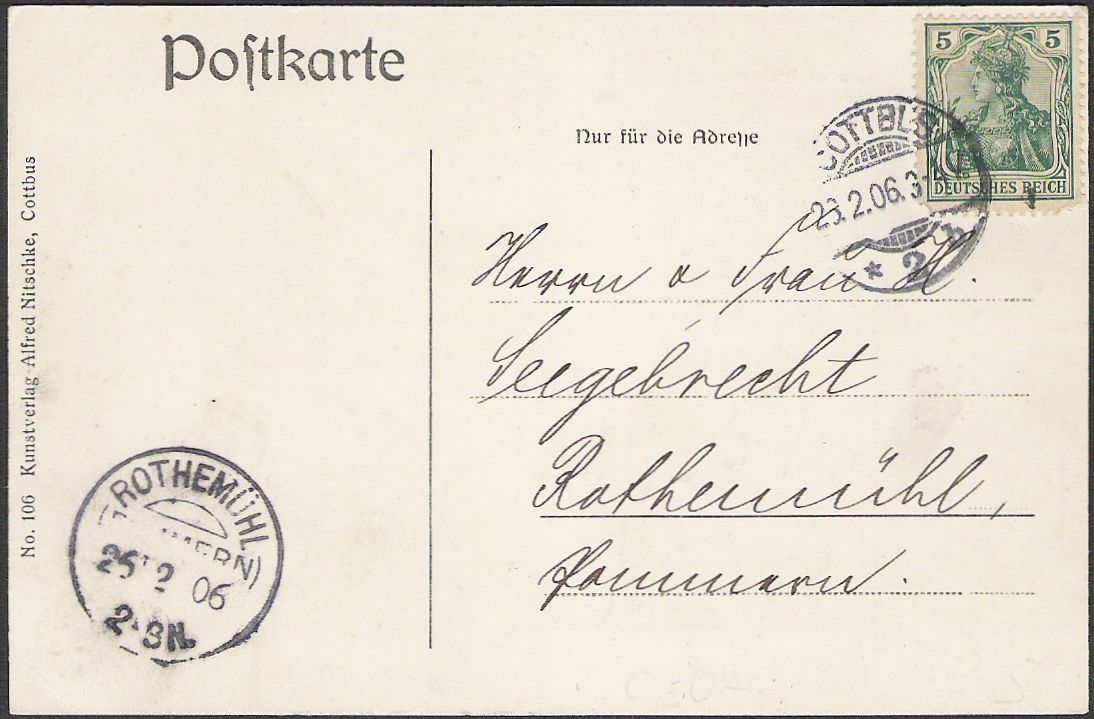 Postkarte
Nur für die Adresse
5 5
DEUTSCHES REICH
COTTBUS
2.06.3-4
* 2 b
Herrn u Frau H.
Seegebrecht
Rothemühl,
Pommern.
No. 106 Kunstverlag Alfred Nitschke, Cottbus
ROTHEMÜHL
MERN)
26 2 06
2-3N.